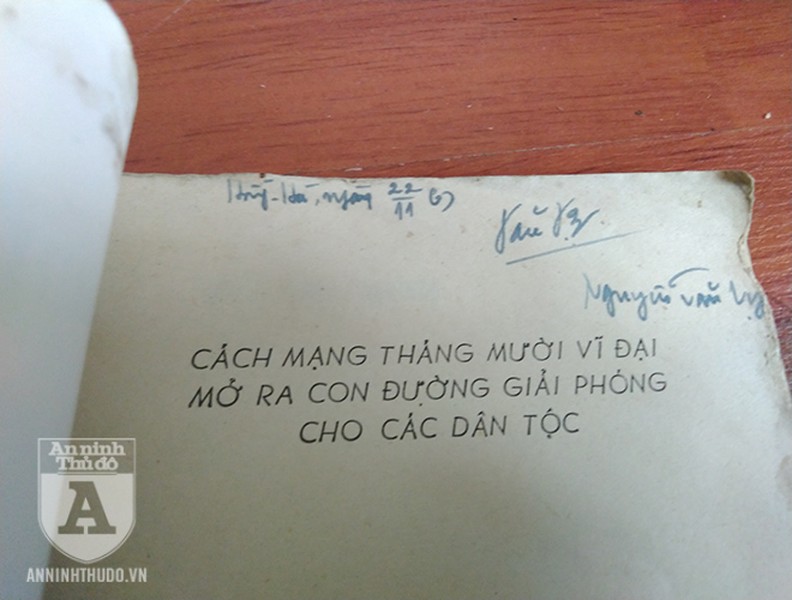 ngày 22/11 67
Văn Vỵ
Nguyễn Văn Vỵ
CÁCH MẠNG THÁNG MƯỜI VĨ ĐẠI
MỞ RA CON ĐƯỜNG GIẢI PHÓNG
CHO CÁC DÂN TỘC
An ninh
Thủ đô
A
ANNINHTHUDO.VN